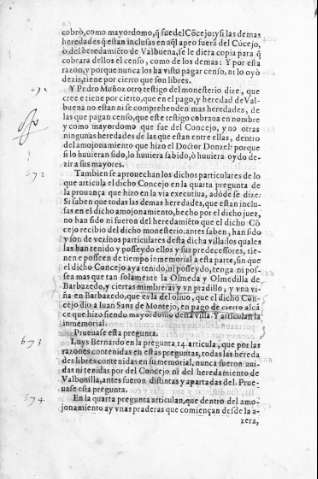 cobrò, como mayordomo, q̃ fue del Cõcejo: y si las demas
heredades q̃ estan inclusas en aq̃l apeo fuera del Cõcejo,
ò del heredamiẽto de Valbuena, se le diera copia para q̃
cobrara dellos el censo, como de los demas: Y por esta
razon, y porque nunca los ha visto pagar censo, ni lo oyò
dezir, tiene por cierto que son libres.
672 Y Pedro Muñoz otro testigo del monesterio dize, que
cree e tiene por cierto, que en el pago, y heredad de Val-
buena no estan ni se comprehenden mas heredades, de
las que pagan censo, que este testigo cobraua en nombre
y como mayordomo que fue del Concejo, y no otras
ningunas heredades de las que estan entre ellas, dentro
del amojonamiento que hizo el Doctor Donzel: porque
si lo huuieran sido, lo huuiera sabido, ò huuiera oydo de-
zir a sus mayores.
672 Tambien se aprouechan los dichos particulares de lo
que articula el dicho Concejo en la quarta pregunta de
la prouança que hizo en la via executiua, adõde se dize:
Si saben que todas las demas heredades, que estan inclu-
sas en el dicho amojonamiento, hecho por el dicho juez,
no han sido ni fueron del heredamiẽto que el dicho Cõ
cejo recibio del dicho monesterio. antes saben, han sido
y son de vezinos particulares desta dicha villa: los quales
las han tenido y posseydo ellos y sus predecessores, tie-
nen e posseen de tiempo inmemorial a esta parte, sin que
el dicho Concejo aya tenido, ni posseydo, tenga ni pos-
sea mas que tan solamente la Olmeda y Olmedilla de
Barbazedo, y ciertas mimbreras y vn pradillo, y vna vi-
ña en Barbazedo, que es la del oliuo, que el dicho Con-
cejo dio a Iuan Sanz de Montejo, en pago de cierto alcã
ce que hizo siendo mayordomo desta villa. Y articulan la
inmemorial.
Prueuase esta pregunta.
673 Luys Bernardo en la pregunta 14. articula, que por las
razones contenidas en estas preguntas, todas las hereda
des libres contenidas en su memorial, nunca fueron uni-
das ni tenidas por del Concejo ni del heredamiento de
Valbonilla, antes fueron distintas y apartadas del. Prue-
uase esta pregunta.
674 En la quarta pregunta articulan, que dentro del amo-
jonamiento ay vnas praderas que comiençan desde la a-
zera,